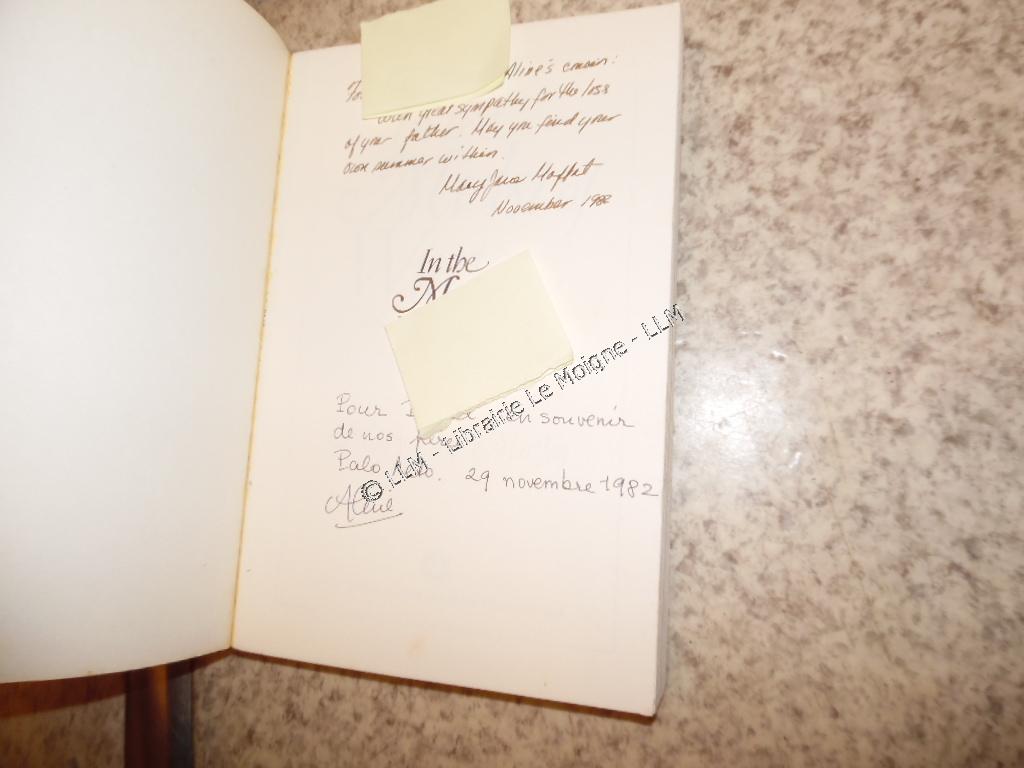 Aline's cousin:
with great sympathy for the loss
of your father. May you find your
own summer within.
Mary Jane Moffat
November 1982
In the
Pour en souvenir
de nos pères
Palo Alto. 29 novembre 1982
Aline
© LLM - Librairie Le Moigne - LLM